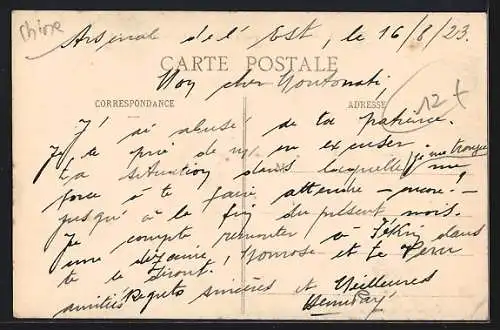 Chine
Arsenal de l'Est, le 16/8/23.
CARTE POSTALE
Mon cher
CORRESPONDANCE
ADRESSE
12 f
J'ai abusé de ta patience.
Je te prie de m'en excuser.
La situation dans laquelle je me trouve me
force à te faire attendre – encore! –
jusqu'à la fin du présent mois.
Je compte remonter à Pékin dans
une dizaine, et te
te le
Regrets sincères et Meilleures
amitiés